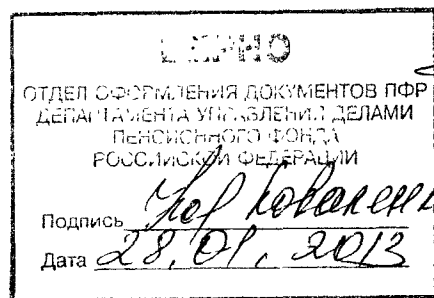 ВЕРНО
ОТДЕЛ ОФОРМЛЕНИЯ ДОКУМЕНТОВ ПФР
ДЕПАРТАМЕНТА УПРАВЛЕНИЯ ДЕЛАМИ
ПЕНСИОННОГО ФОНДА
РОССИЙСКОЙ ФЕДЕРАЦИИ
Подпись
Дата 28.01.2013